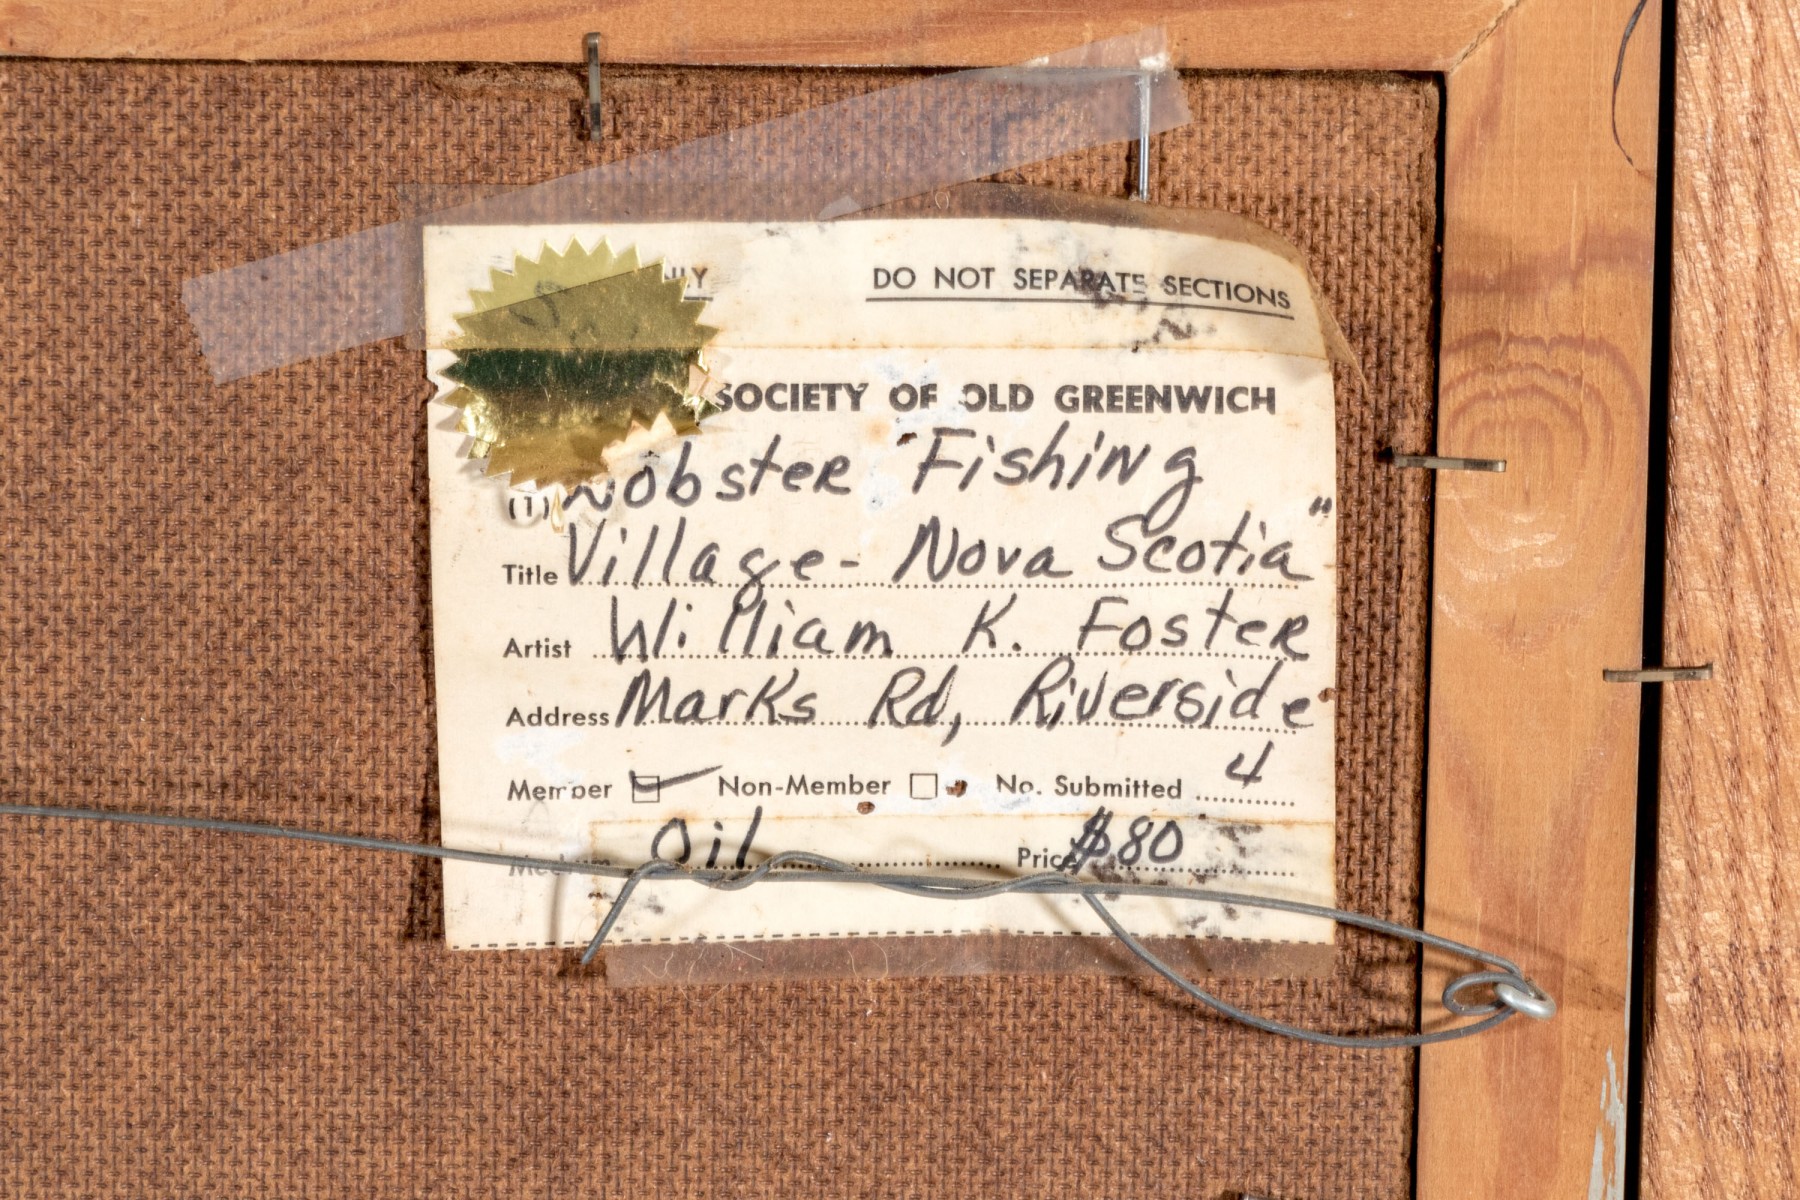 DO NOT SEPARATE SECTIONS
SOCIETY OF OLD GREENWICH
(1) Lobster Fishing
Title Village - Nova Scotia"
Artist William K. Foster
Address Marks Rd, Riverside
Member Non-Member No. Submitted 4
Medium Oil Price $80